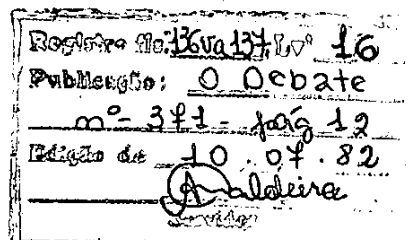 Registro fls. 136 va 137, Lvº 16
Publicação: O Debate
nº - 371 - pág 12
Edição de 10 . 07 . 82
Servidor